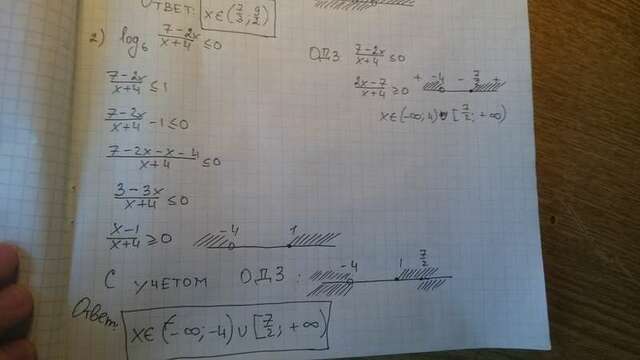 Ответ: x∈(7/3; 9/2)
2) log₆ (7-2x)/(x+4) ≤0
(7-2x)/(x+4) ≤1
(7-2x)/(x+4) -1≤0
(7-2x-x-4)/(x+4) ≤0
(3-3x)/(x+4) ≤0
(x-1)/(x+4) ≥0
-4 1
ОДЗ (7-2x)/(x+4) ≤0
(2x-7)/(x+4) ≥0
+ -4 - 7/2 +
x∈(-∞;4)∪[7/2; +∞)
С учетом ОДЗ:
-4 1 7/2
Ответ: x∈(-∞;-4)∪[7/2; +∞)